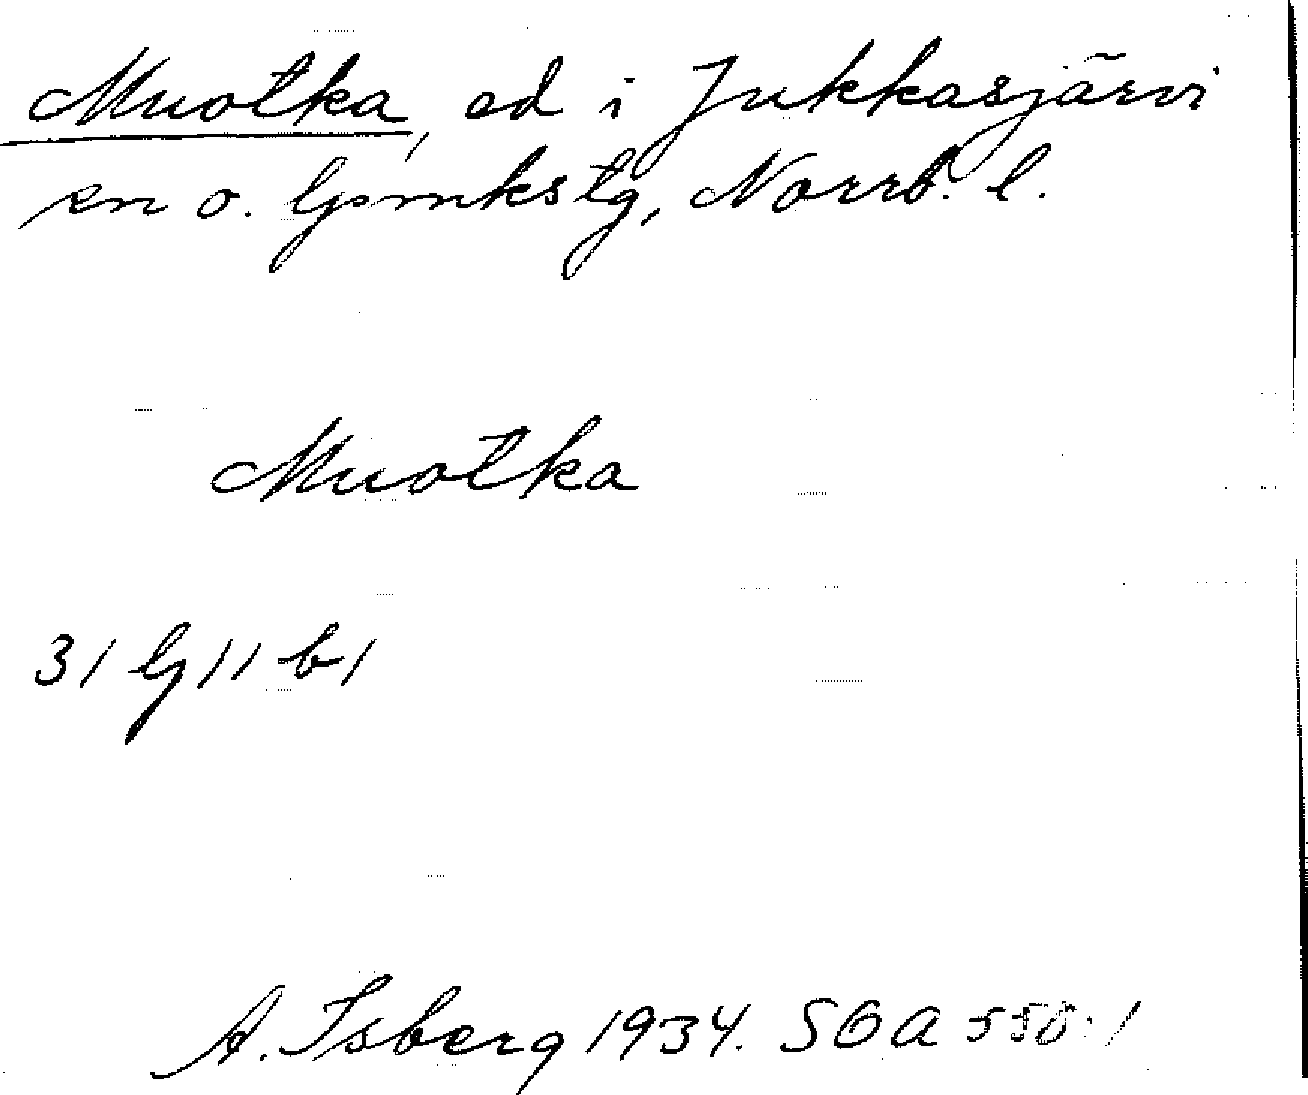 Muotka, ed i Jukkasjärvi
sn o. tgsmkstg, Norrb. l.
Muotka
31 G 11 b 1
A. Isberg 1934. SOA 550:1